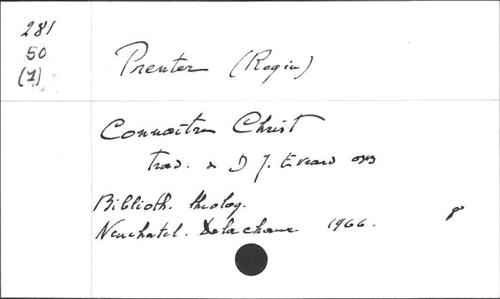 281
50
(1)
Prenter (Regin)
Connaître Christ
trad. D J. Evrard OSB
Biblioth. théolog.
Neuchatel. Delachaux 1966. 8